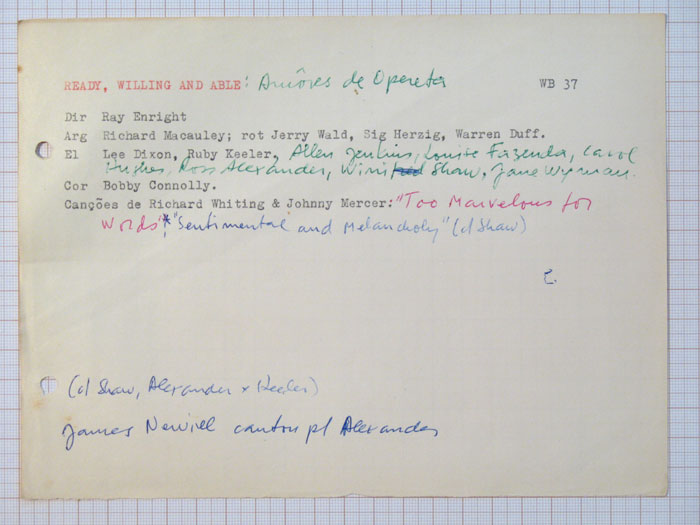 READY, WILLING AND ABLE: Amôres de Opereta WB 37
Dir Ray Enright
Arg Richard Macauley; rot Jerry Wald, Sig Herzig, Warren Duff.
El Lee Dixon, Ruby Keeler, Allen Jenkins, Louise Fazenda, Carol
Hughes, Ross Alexander, Winifred Shaw, Jane Wyman.
Cor Bobby Connolly.
Canções de Richard Whiting & Johnny Mercer: "Too Marvelous for
Words"* "Sentimental and Melancholy" (c/ Shaw)
(c/ Shaw, Alexander x Keeler)
James Newill cantou p/ Alexander